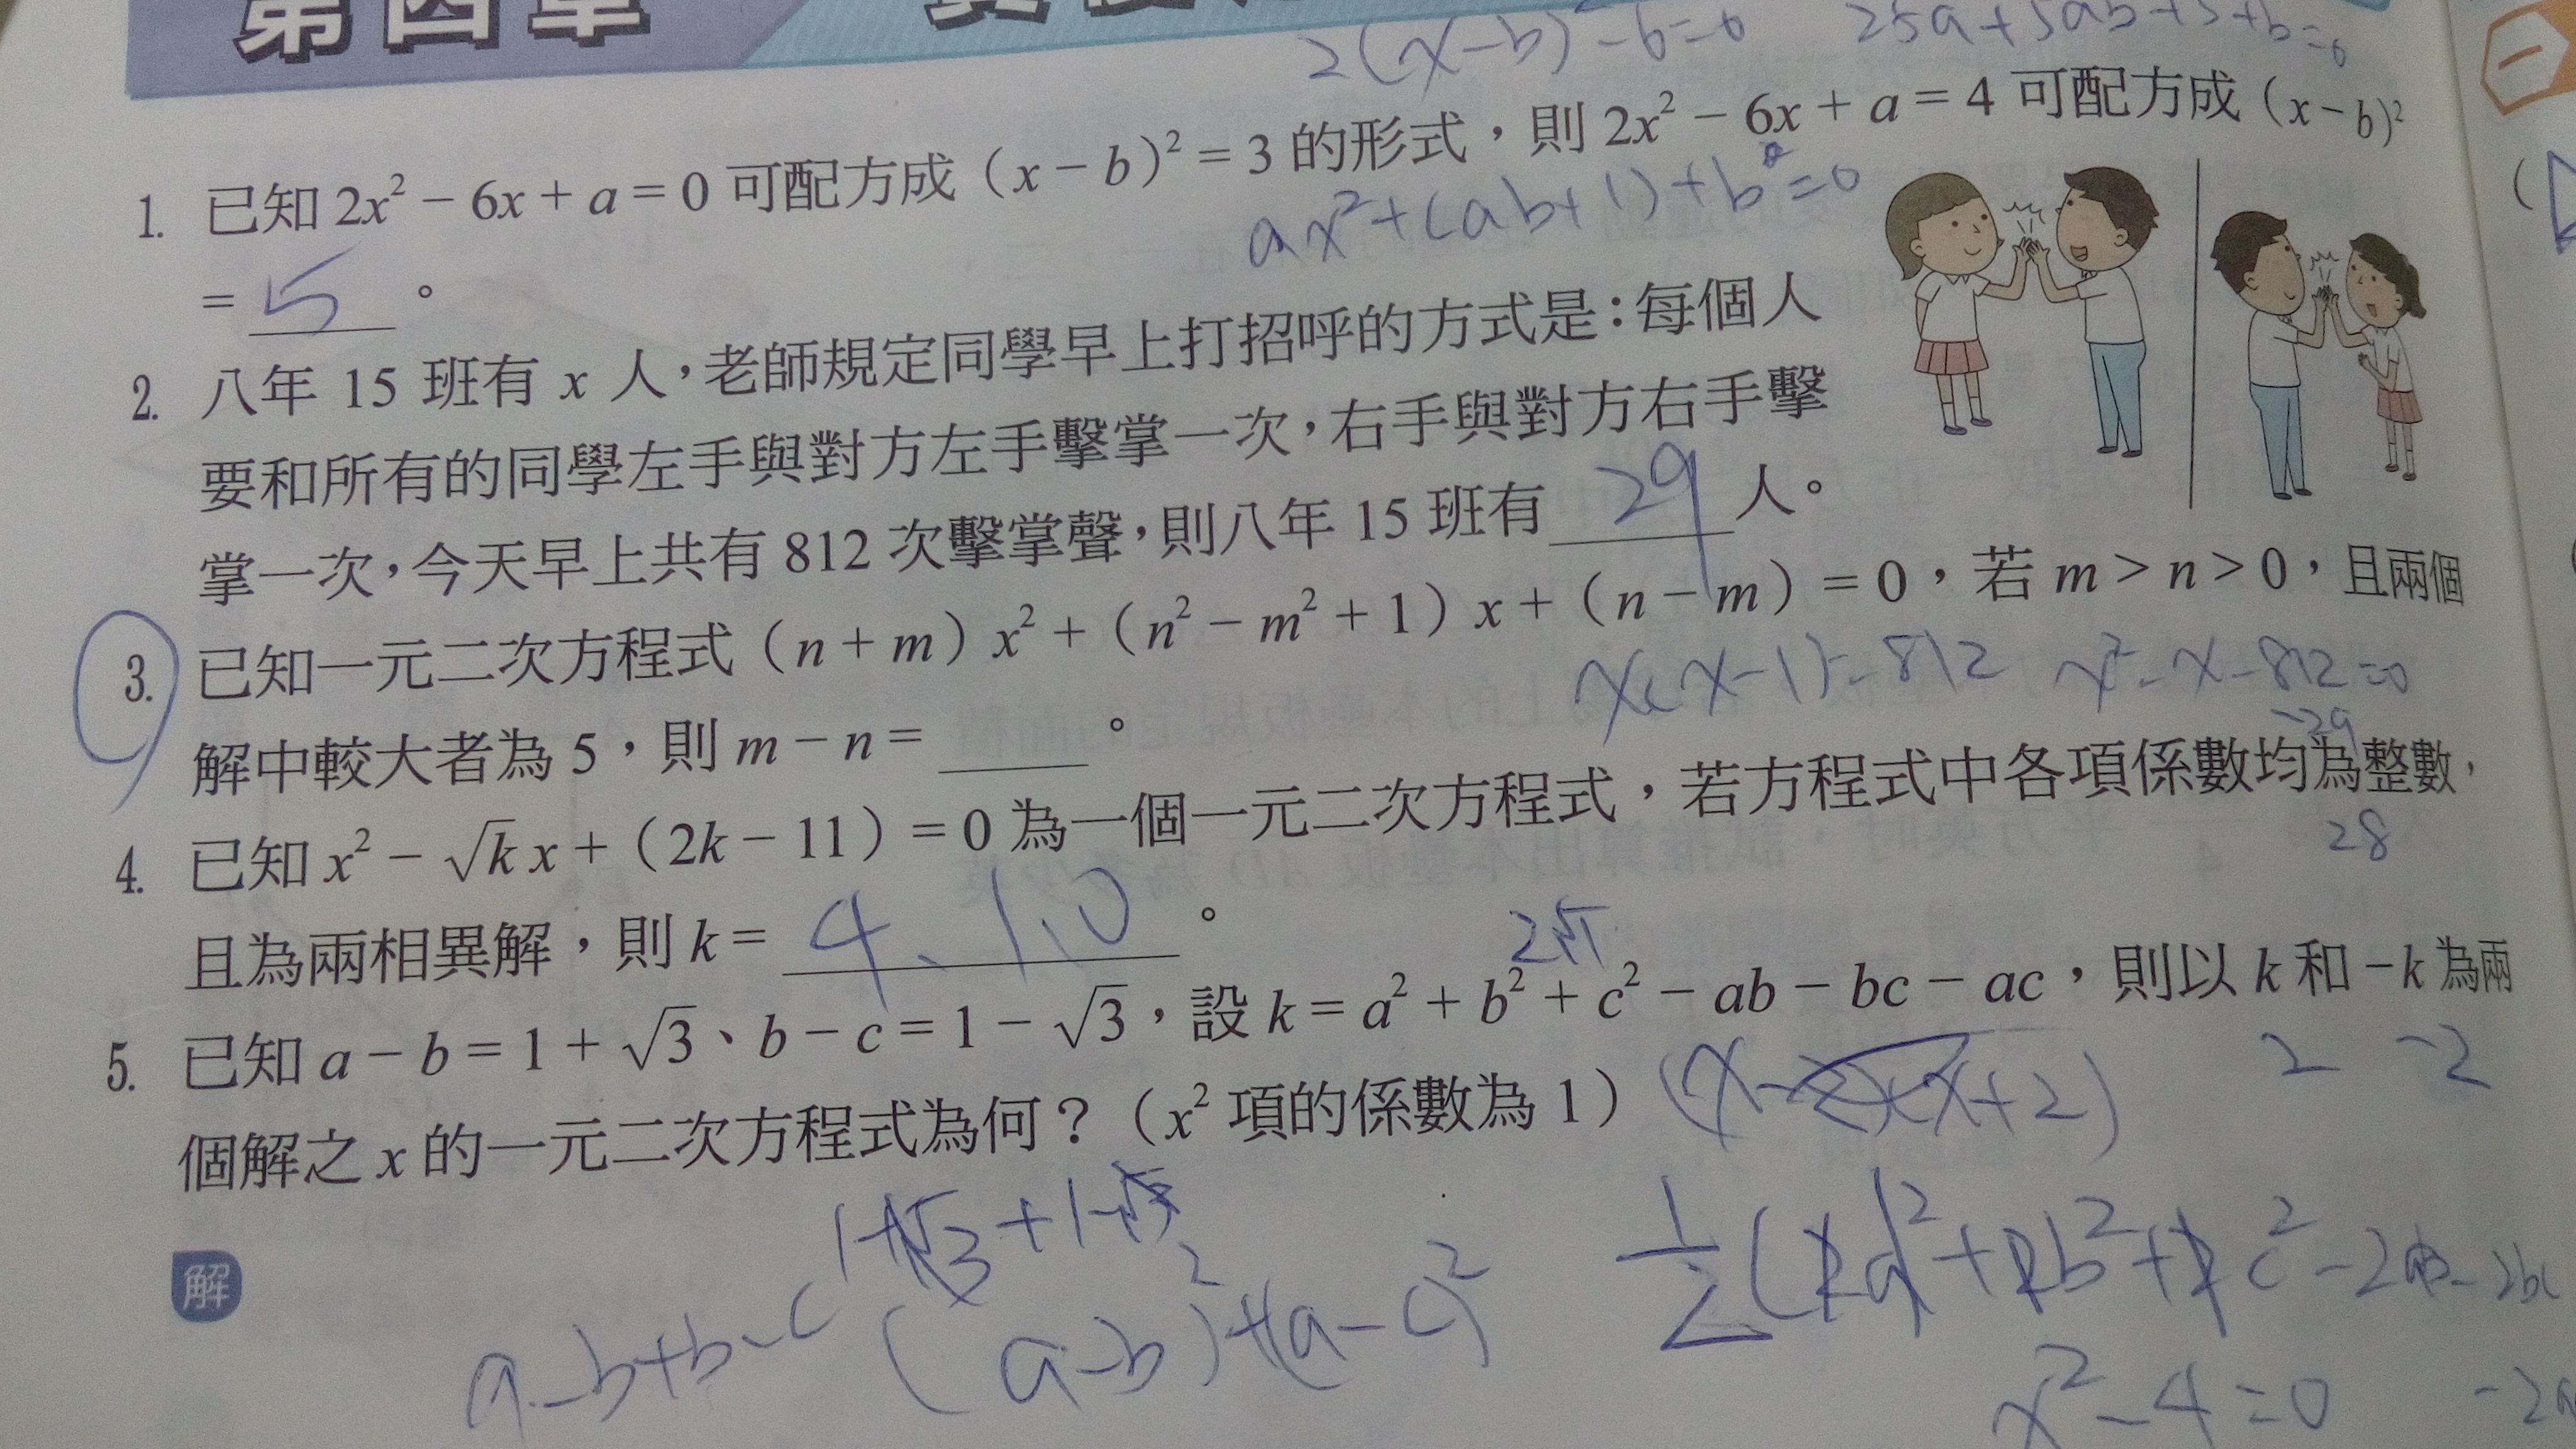 第四章
2(x-b)²-6=0 25a+5ab+5+b=0
1. 已知 2x² − 6x + a = 0 可配方成 (x − b)² = 3 的形式,則 2x² − 6x + a = 4 可配方成 (x − b)²
ax²+(ab+1)+b=0
= 5 。
2. 八年 15 班有 x 人,老師規定同學早上打招呼的方式是:每個人
要和所有的同學左手與對方左手擊掌一次,右手與對方右手擊
掌一次,今天早上共有 812 次擊掌聲,則八年 15 班有 29 人。
3. 已知一元二次方程式 (n + m) x² + (n² − m² + 1) x + (n − m) = 0,若 m > n > 0,且兩個
x(x-1)=812 x²-x-812=0
解中較大者為 5,則 m − n = 。
-29
28
4. 已知 x² − √k x + (2k − 11) = 0 為一個一元二次方程式,若方程式中各項係數均為整數,
且為兩相異解,則 k = 4、1、0 。
5. 已知 a − b = 1 + √3、b − c = 1 − √3,設 k = a² + b² + c² − ab − bc − ac,則以 k 和 −k 為兩
2 -2
個解之 x 的一元二次方程式為何?(x² 項的係數為 1) (x-2)(x+2)
1+√3+1-√3
解
a-b+b-c (a-b)²+(a-c)² ½(2a²+2b²+2c²-2ab-2bc
x²-4=0